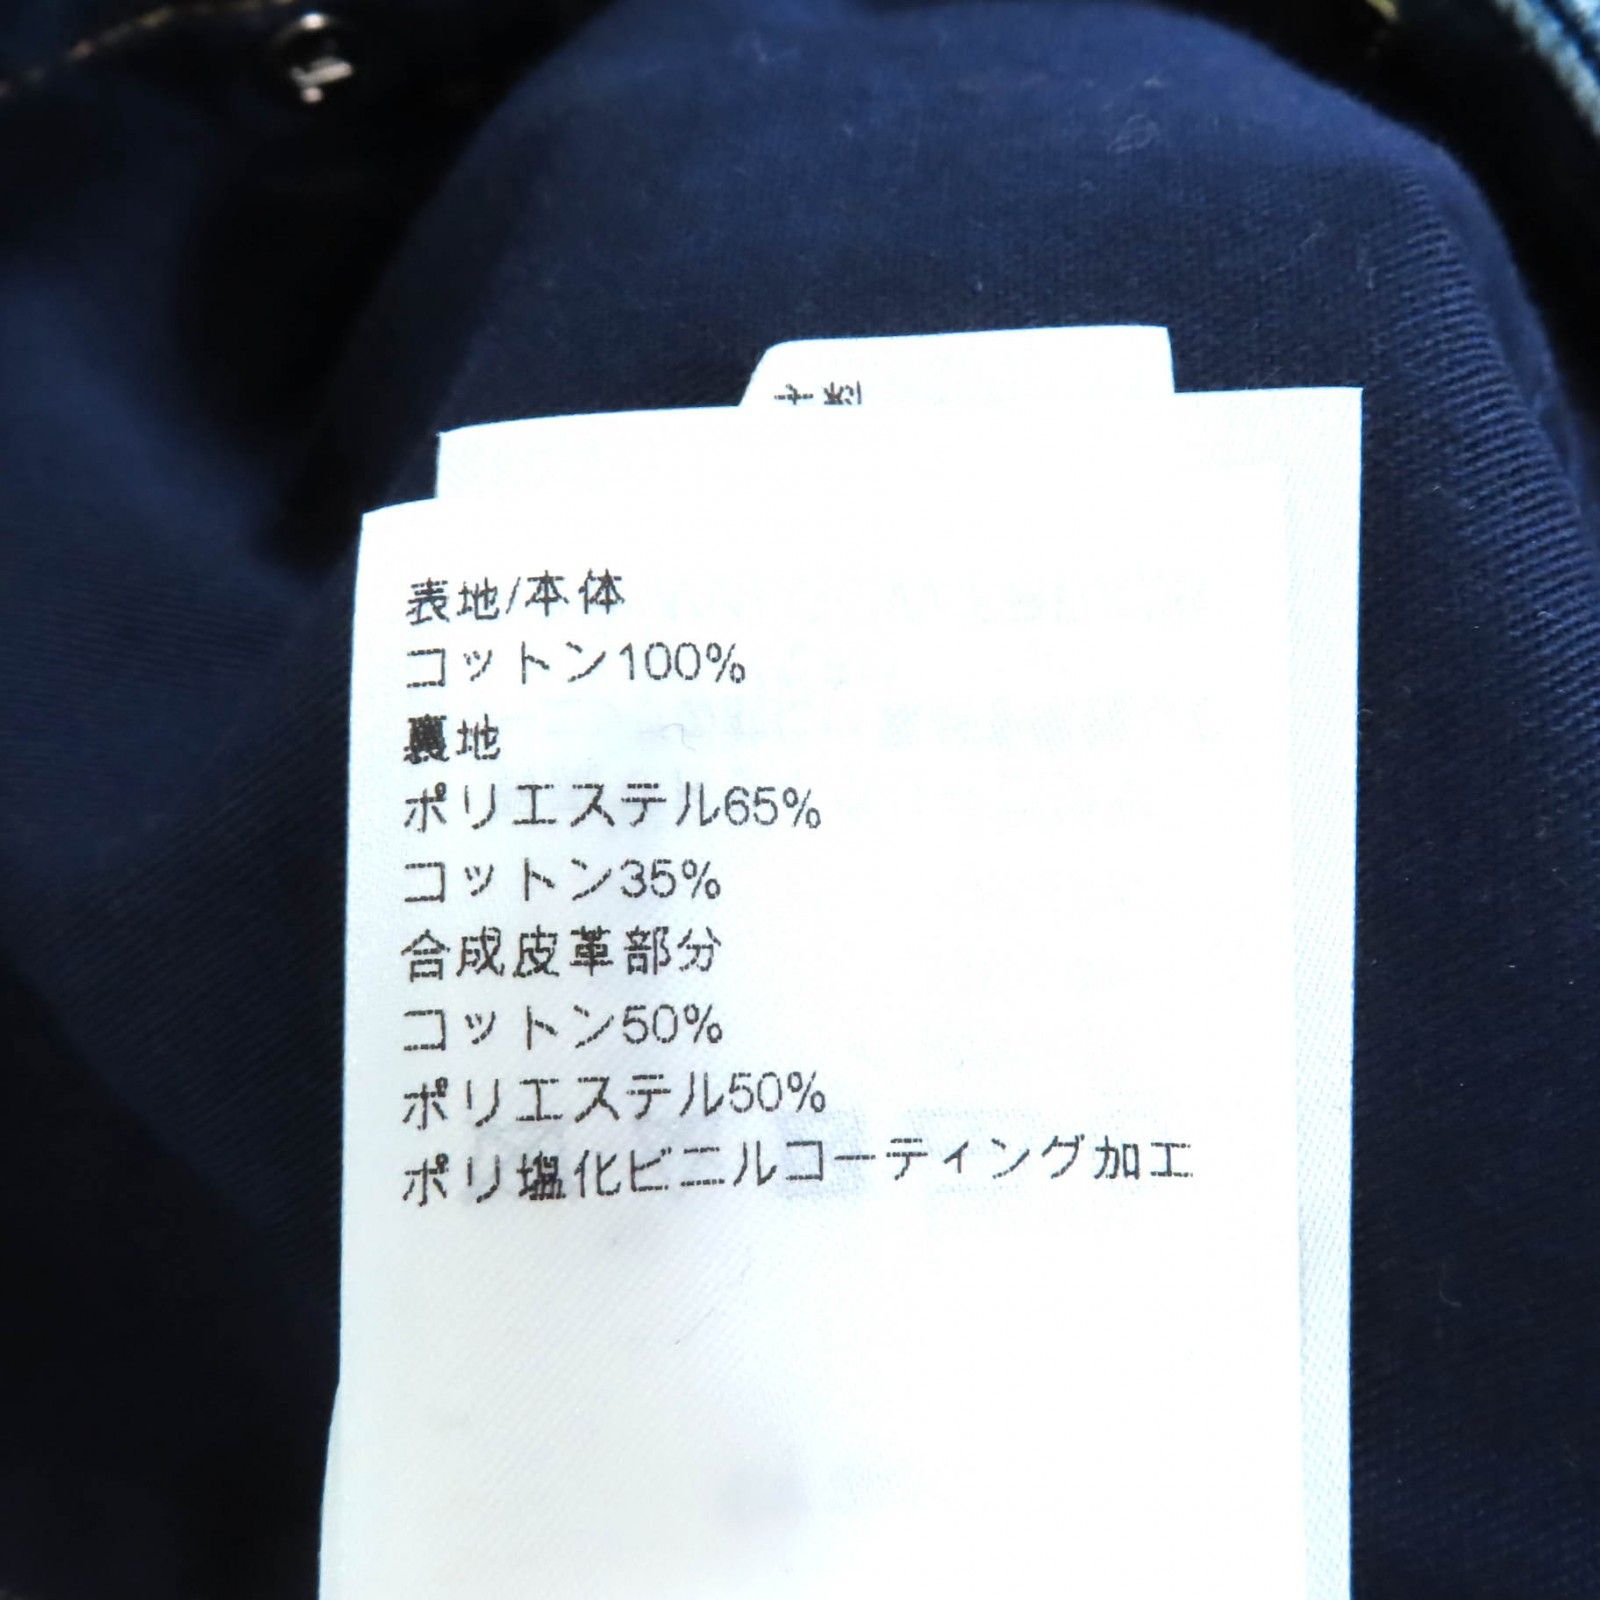 表地/本体
コットン100%
裏地
ポリエステル65%
コットン35%
合成皮革部分
コットン50%
ポリエステル50%
ポリ塩化ビニルコーティング加工